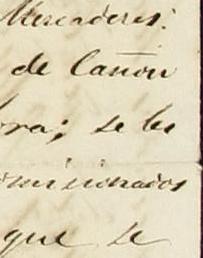 Mercaderes:
de Cañon
ra; se les
misionados
que se